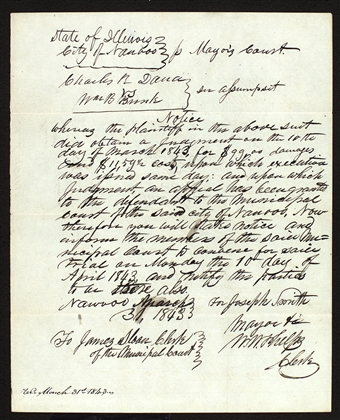 State of Illinois
City of Nauvoo } Mayors Court.
Charles R Dana
vs
Wm B Brink } in assumpsit
Notice
whereas the plaintiff in the above suit
did obtain a Judgment on the 10th
day of March 1843, for $99, in damages
and costs, upon which execution
was issued same day: and upon which
Judgment an appeal has been granted
to the defendant to the Municipal
court of the said city of Nauvoo, Now
therefore you will take notice and
inform the members of the said Mu-
nicipal Court to convene for said
trial on Monday the 10th day of
April 1843, and notify the parties
to be there also.
Nauvoo March
31, 1843
Joseph Smith
Mayor
To James Sloan, Clerk
of the Municipal Court
W.W. Phelps,
Clerk
March 31st 1843